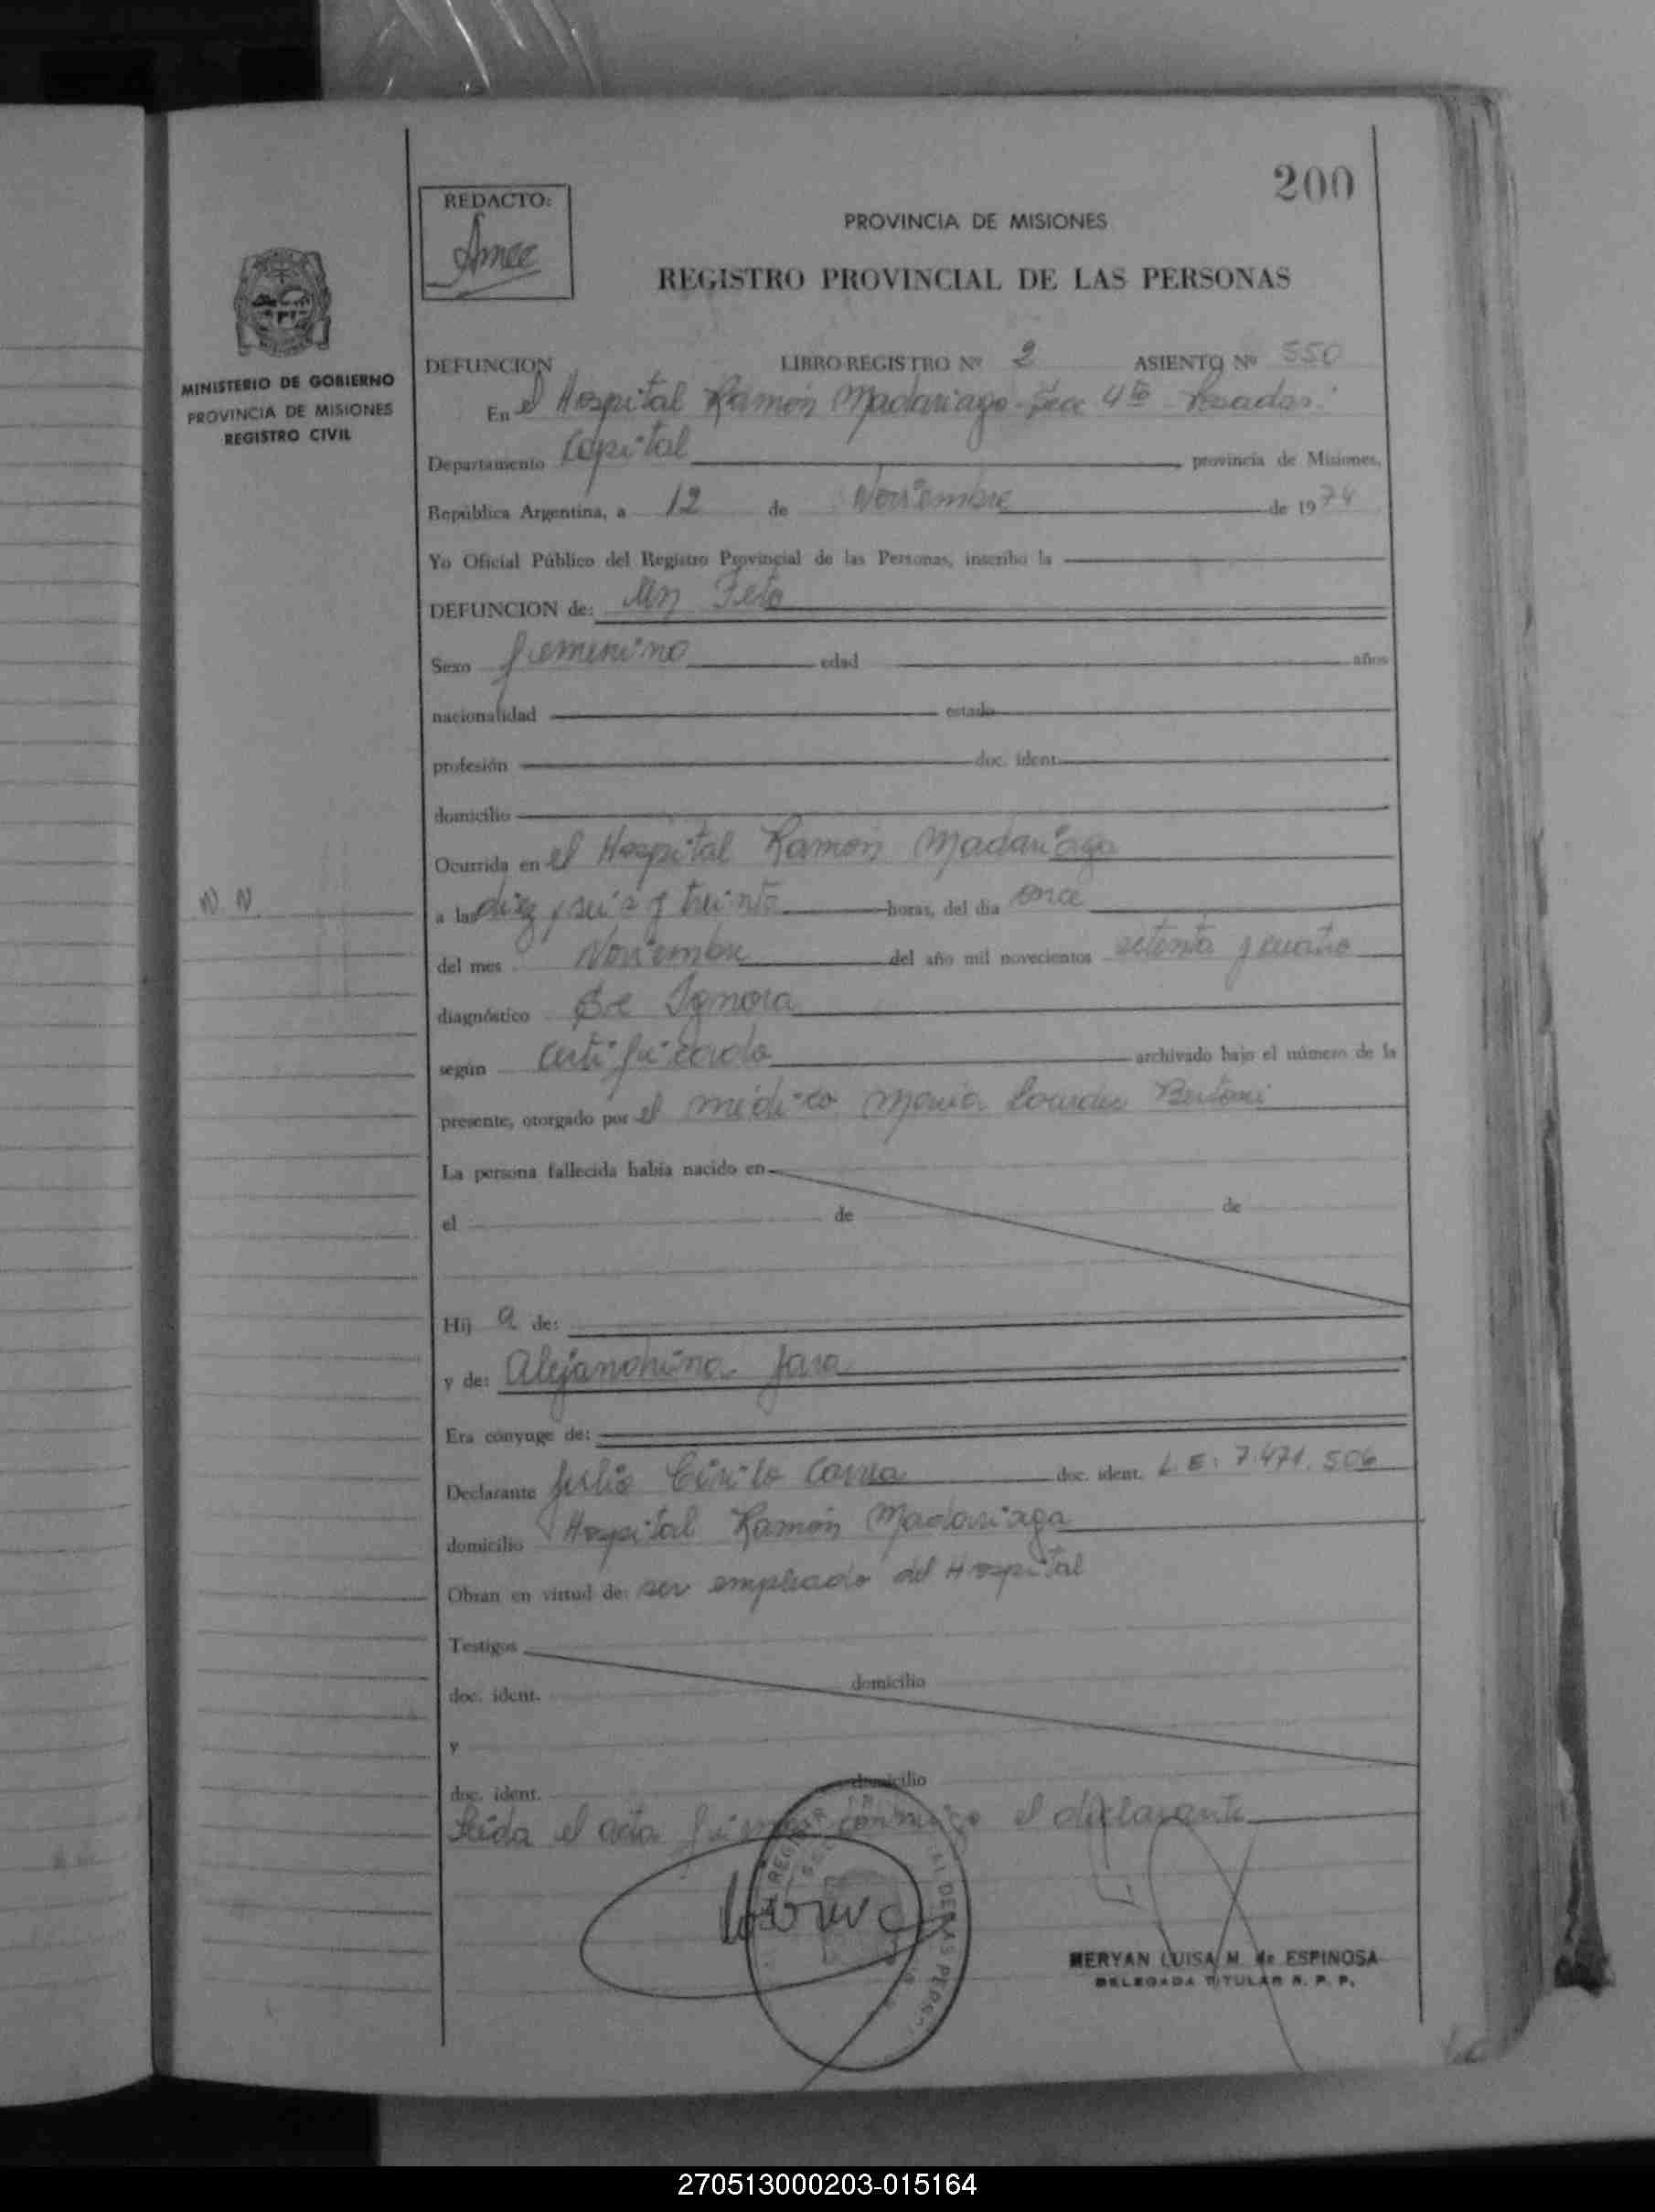 200
REDACTO:
PROVINCIA DE MISIONES
REGISTRO PROVINCIAL DE LAS PERSONAS
MINISTERIO DE GOBIERNO
PROVINCIA DE MISIONES
REGISTRO CIVIL
DEFUNCION LIBRO REGISTRO Nº 2 ASIENTO Nº 550
En el Hospital Ramón Madariaga - Secc 4ta Posadas
Departamento Capital provincia de Misiones,
República Argentina, a 12 de Noviembre de 1974
Yo Oficial Público del Registro Provincial de las Personas, inscribo la
DEFUNCION de: Un Feto
Sexo femenino edad años
nacionalidad estado
profesión doc. ident.
domicilio
Ocurrida en el Hospital Ramón Madariaga
N N
a las diez y seis y treinta horas, del día once
del mes Noviembre del año mil novecientos setenta y cuatro
diagnóstico Se Ignora
según certificado archivado bajo el número de la
presente, otorgado por el médico María Lourdes Bertoni
La persona fallecida había nacido en
el de de
Hij a de:
y de: Alejandrina Jara
Era cónyuge de:
Declarante Julio Cirilo doc. ident. L.E: 7.471.506
domicilio Hospital Ramón Madariaga
Obran en virtud de: ser empleado del Hospital
Testigos
doc. ident. domicilio
y
doc. ident. domicilio
Leida el acta firma conmigo el declarante
MERYAN LUISA M. de ESPINOSA
DELEGADA TITULAR R. P. P.
270513000203-015164